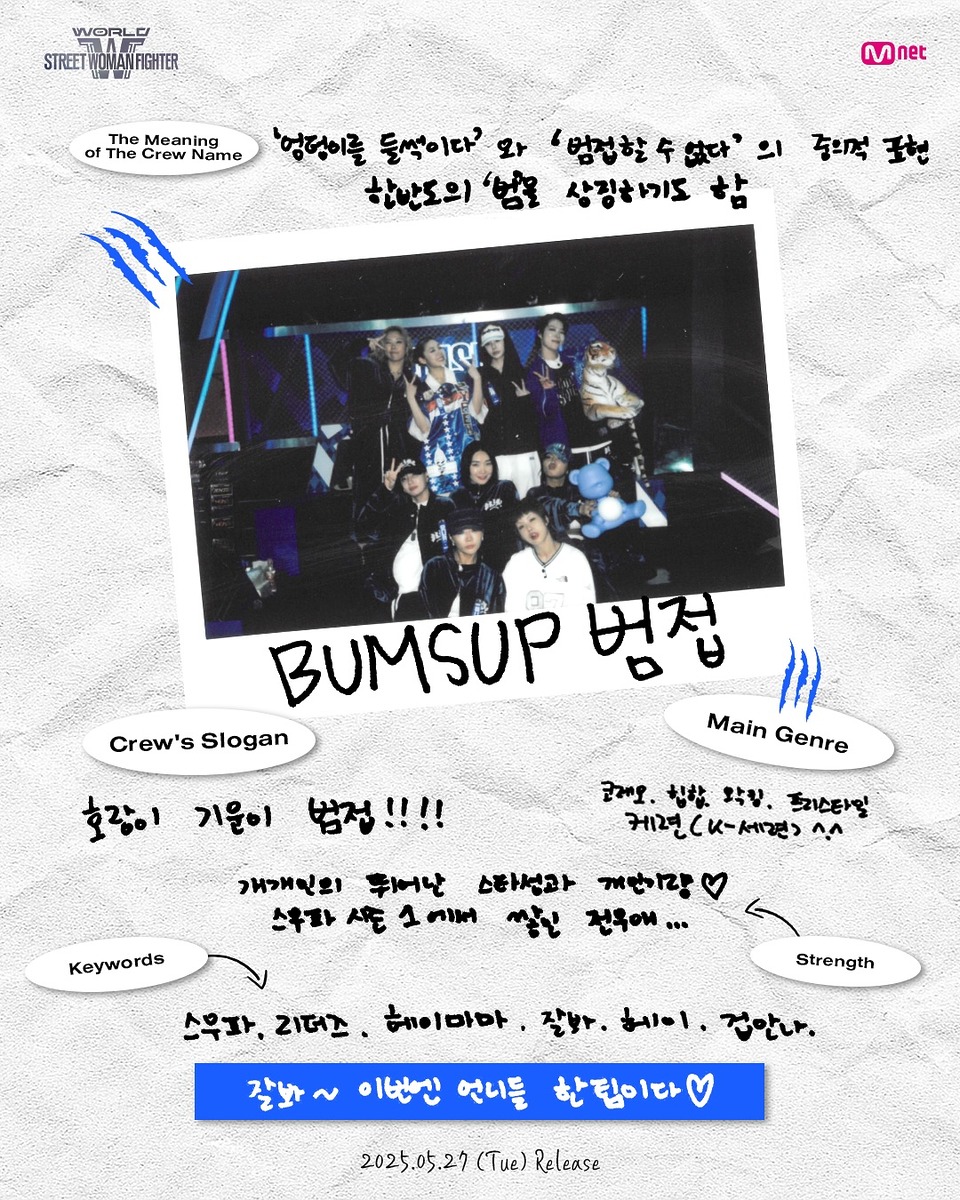 WORLD
W
STREET WOMAN FIGHTER
M net
The Meaning
of The Crew Name
'엉덩이를 들썩이다' 와 '범접할 수 없다' 의 중의적 표현
한반도의 '범'을 상징하기도 함
BUMSUP 범접
Crew's Slogan
Main Genre
호랑이 기운이 범접!!!!
코레오. 힙합. 왁킹. 프리스타일
케련(K-세련) ^.^
개개인의 뛰어난 스타성과 개인기량♡
스우파 시즌 1에서 쌓인 전우애...
Keywords
Strength
스우파. 리더즈. 헤이마마. 잘봐. 헤이. 겁안나.
잘봐~ 이번엔 언니들 한팀이다♡
2025.05.27 (Tue) Release